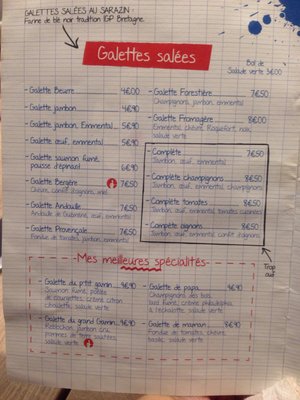 GALETTES SALÉES AU SARAZIN :
Farine de blé noir tradition IGP Bretagne.
Galettes salées
Bol de
Salade verte 3€00
- Galette Beurre 4€00
- Galette jambon 4€90
- Galette jambon, Emmental 5€90
- Galette œuf, emmental 5€90
- Galette saumon fumé,
pousse d'épinard 6€90
- Galette Bergère 7€50
Chèvre, confit d'oignons, miel
- Galette Andouille 7€50
Andouille de Guémené, œuf, emmental
- Galette Provençale 7€50
Fondue de tomates, jambon, emmental
- Galette Forestière 7€50
Champignons, jambon, emmental
- Galette Fromagère 8€00
Emmental, chèvre, Roquefort, noix,
salade verte
- Complète 7€50
Jambon, œuf, emmental
- Complète champignons 8€50
Jambon, œuf, emmental, champignons
- Complète tomates 8€50
Jambon, œuf, emmental, tomates cuisinées
- Complète oignons 8€50
Jambon, œuf, emmental, confit d'oignons
Trop
- Mes meilleures spécialités -
- Galette du p'tit gamin 9€90
Saumon fumé, poêlée
de courgettes, crème citron
ciboulette, salade verte
- Galette du grand Gamin 9€90
Reblochon, jambon cru,
pommes de terre sautées,
salade verte
- Galette de papa 9€90
Champignons des bois,
lard fumé, crème philadelphia
à l'échalote, salade verte
- Galette de maman 8€90
Fondue de tomates, chèvre,
basilic, salade verte